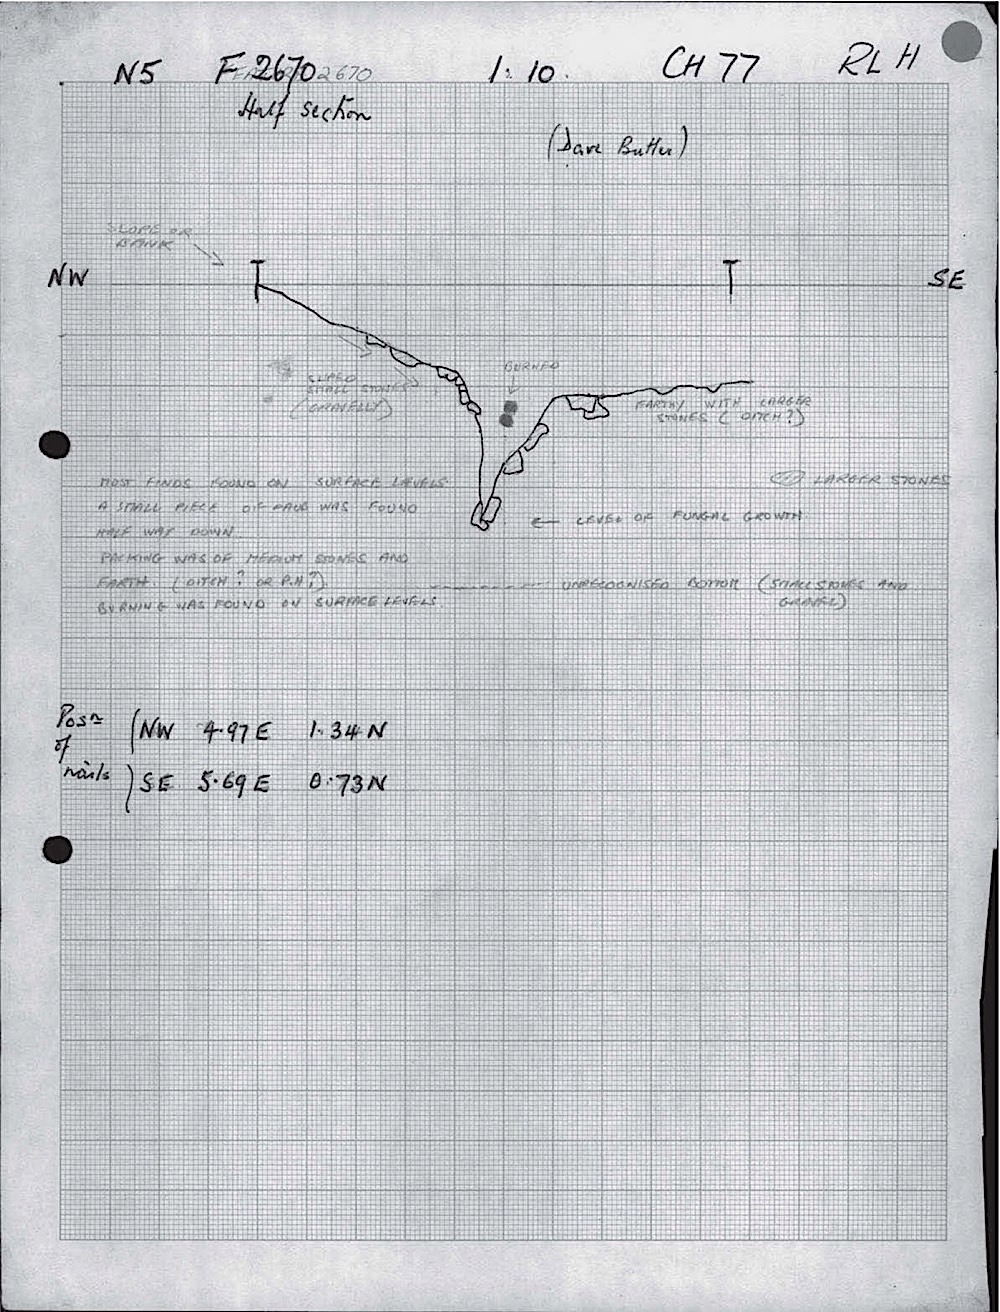 N5 F 2670 1:10. CH 77 RLH
Half section
(Dave Butler)
SLOPE OR
BANK
NW
SE
BURNED
SLIPED
SMALL STONES
(GRAVELLY)
EARTHY WITH LARGER
STONES (DITCH?)
MOST FINDS FOUND ON SURFACE LEVELS
A SMALL PIECE OF DAUB WAS FOUND
HALF WAY DOWN.
PACKING WAS OF MEDIUM STONES AND
EARTH. (DITCH? OR P.H?).
BURNING WAS FOUND ON SURFACE LEVELS.
LARGER STONES
← LEVEL OF FUNGAL GROWTH
UNRECOGNISED BOTTOM (SMALL STONES AND
GRAVEL)
Posn of nails
NW 4.97 E 1.34 N
SE 5.69 E 0.73 N